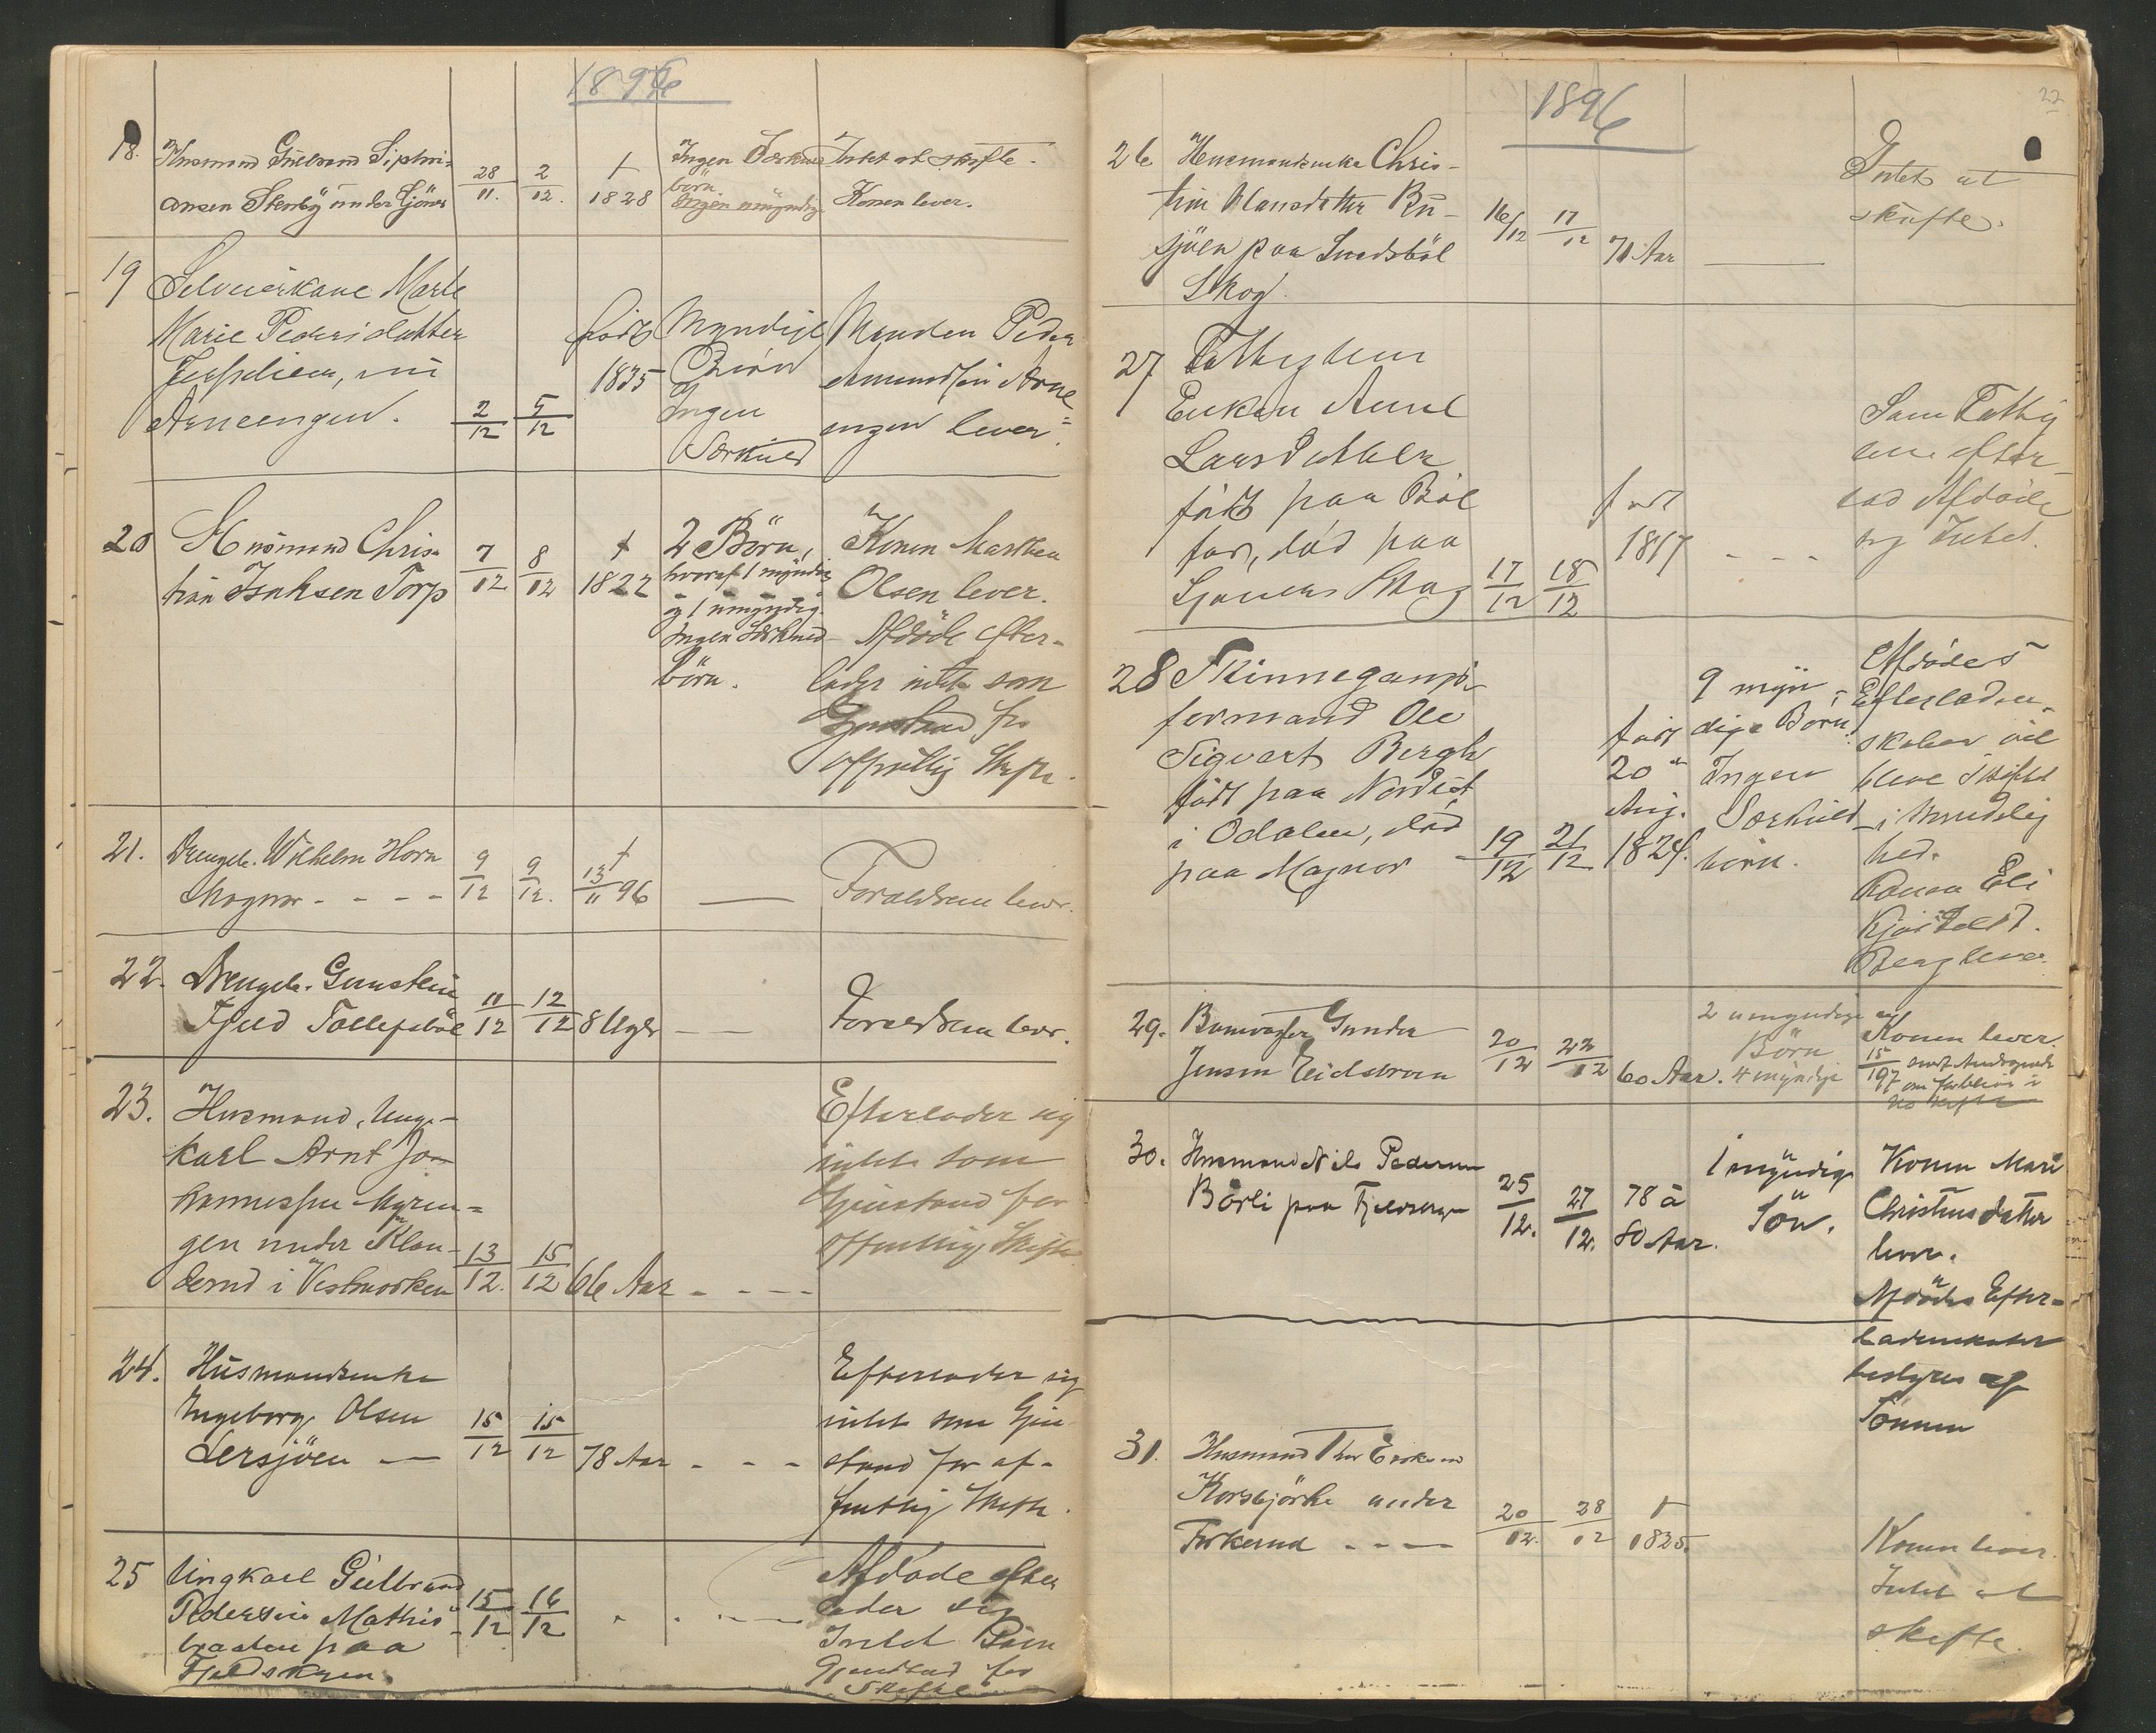 1896
18. Husmand Gulbrand Siphri-
ansen Stenby under Gjöner
28/11. 2/12. † 1828
Ingen Særkuld
börn.
Ingen umyndig
Intet at skifte.
Konen lever.
19 Selveierkone Marte
Marie Pedersdatter
nu
Arneengen.
2/12 5/12
født
1835
Myndige
Börn
Ingen
Særkuld
Manden Peder
Amundsen Arne=
engen lever.
20 Husmand Chris-
tian Isaksen Torp
7/12 8/12 † 1822
2 Börn,
hvoraf 1 myndig
og 1 umyndig.
Ingen Særkuld-
börn.
Konen Marthea
Olsen lever.
Afdöde efter-
lader intet som
Gjenstand for
offentlig Skifte.
21. Drengeb. Wilhelm Horn
Magnor - - - -
9/12 9/12. † 13/11 96
Forældrene lever.
22. Drengeb. Gunstein
Fjeld Tollefsböl
11/12 12/12 8 Uger - -
Forældrene lever.
23. Husmand, Unge-
karl Arnt Jo-
hannessen Myren=
gen under Klan-
derud i Vestmarken
13/12. 15/12 66 Aar - - - -
Efterlader sig
intet som
Gjenstand for
offentlig Skifte
24. Husmandsenke
Ingeborg Olsen
Lersjöen —
15/12 15/12 78 Aar - - -
Efterlader sig
intet som Gjen
stand for of-
fentlig Skifte.
25 Ungkarl Gulbrand
Pedersen Mathis-
braaten paa
Fjeldskogen.
15/12 16/12
Afdøde efter
lader sig
Intet som
Gjenstand for
Skifte
1896
22
26 Husmandsenke Chris-
tine Olausdatter Bu-
sjöen paa Smedsböl
Skog.
16/12 17/12 71 Aar —
Intet at
skifte.
27 Fattiglem
Enken Anne
Larsdatter
født paa Böl
för, död paa
Skog
17/12 18/12
født
1817 - - -
Som Fattig
lem efter-
lod Afdöde
sig Intet.
28
formand Ole
Sigvart Bergh
født paa Nordset
i Odalen, död
paa Magnor
19/12 21/12
født
20de
Aug.
1824.
9 myn-
dige Börn.
Ingen
Særkuld-
börn.
Afdödes
Efterladen-
skaber vil
blive skiftet
i Mindelig
hed.
Konen Eli
Berg lever.
29. Banevogter Gunder
Jensen Eidsbraaten
20/12 22/12 60 Aar.
2 umyndige og
Börn
4 myndige
Konen lever.
15/1 97
30. Husmand Nils Pedersen
Börli paa Fjeldskogen
25/12. 27/12. 78 à
80 Aar.
1 myndig
Sön.
Konen Mari
Christensdatter
lever.
Afdödes Efter-
ladenskaber
bestyres af
Sönnen
31. Husmand Thor Eriksen
Korsbjörke under
Torkerud - - -
20/12. 28/12 † 1825.
Konen lever.
Intet at
skifte.